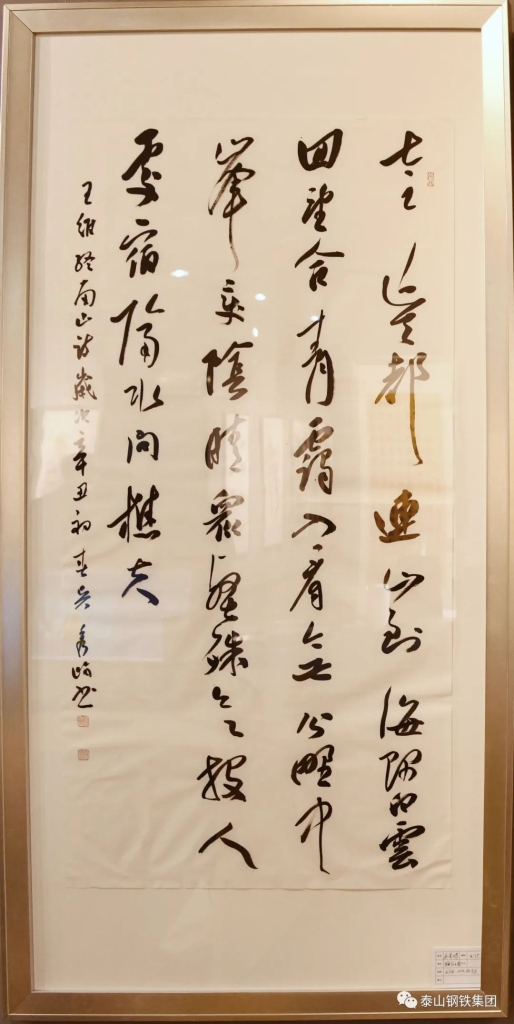 太乙近天都連山到海隅白雲
回望合青靄入看無分野中
峯變陰晴眾壑殊欲投人
處宿隔水問樵夫
王維終南山诗歲次辛丑初春吴秀书
泰山钢铁集团